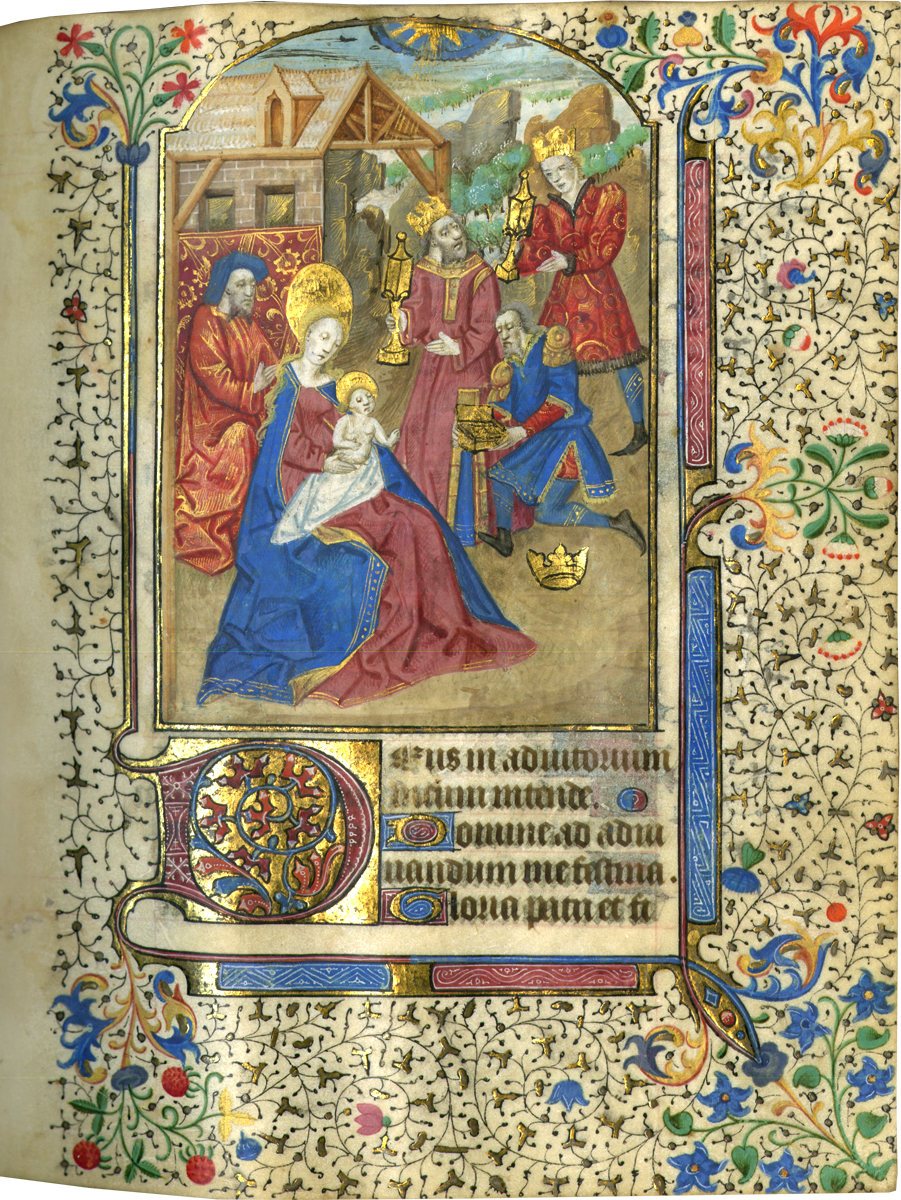 Deus in adiutorium
meum intende.
Domine ad adiu
uandum me festina
Gloria patri et fi